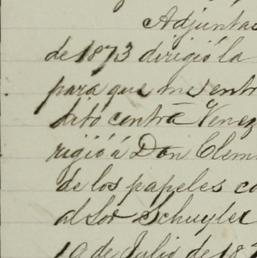 Adjunta
de 1873 dirigió la
para que me entr
dito contra Venez
rigió á Don Clem
de los papeles co
al Sor Schuyler
10 de Julio de 187